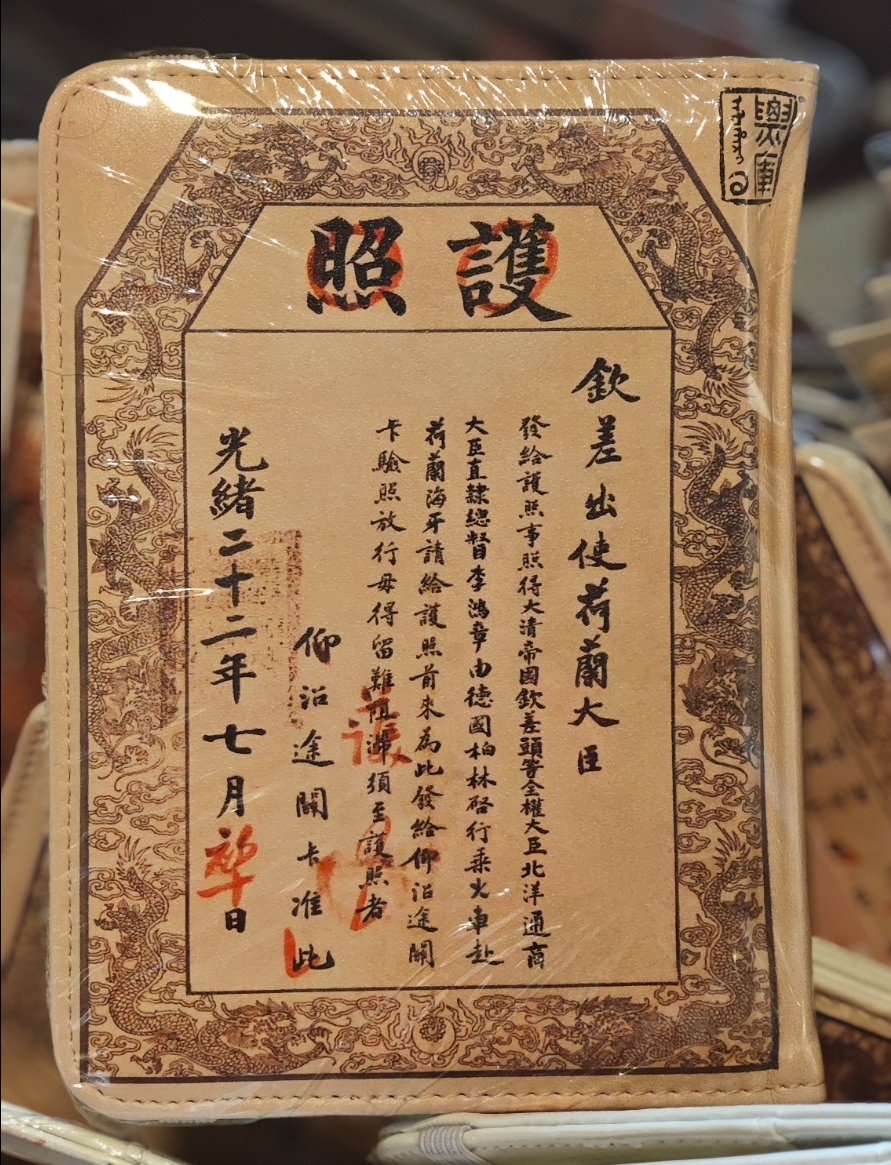 護照
欽差出使荷蘭大臣
發給護照事照得大清帝國欽差頭等全權大臣北洋通商
大臣直隸總督李鴻章由德國柏林啓行乘火車赴
荷蘭海牙請給護照前來為此發給仰沿途關
卡驗照放行毋得留難阻滯須至護照者
仰沿途關卡准此
光緒二十二年七月初十日